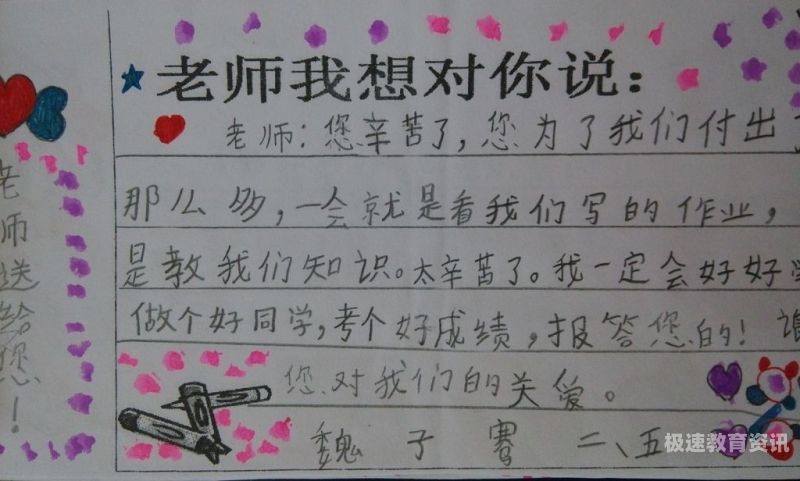 老师送给您！
老师我想对你说：
老师：您辛苦了，您为了我们付出了
那么多，一会就是看我们写的作业，
是教我们知识。太辛苦了。我一定会好好学
做个好同学，考个好成绩，报答您的！谢
您对我们的关爱。
魏子骞 二、五
极速教育资讯